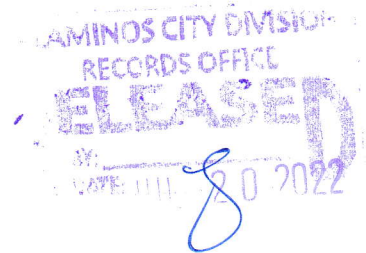 AMINOS CITY DIVISION
RECORDS OFFICE
ELEASED
BY:
DATE: 20 2022